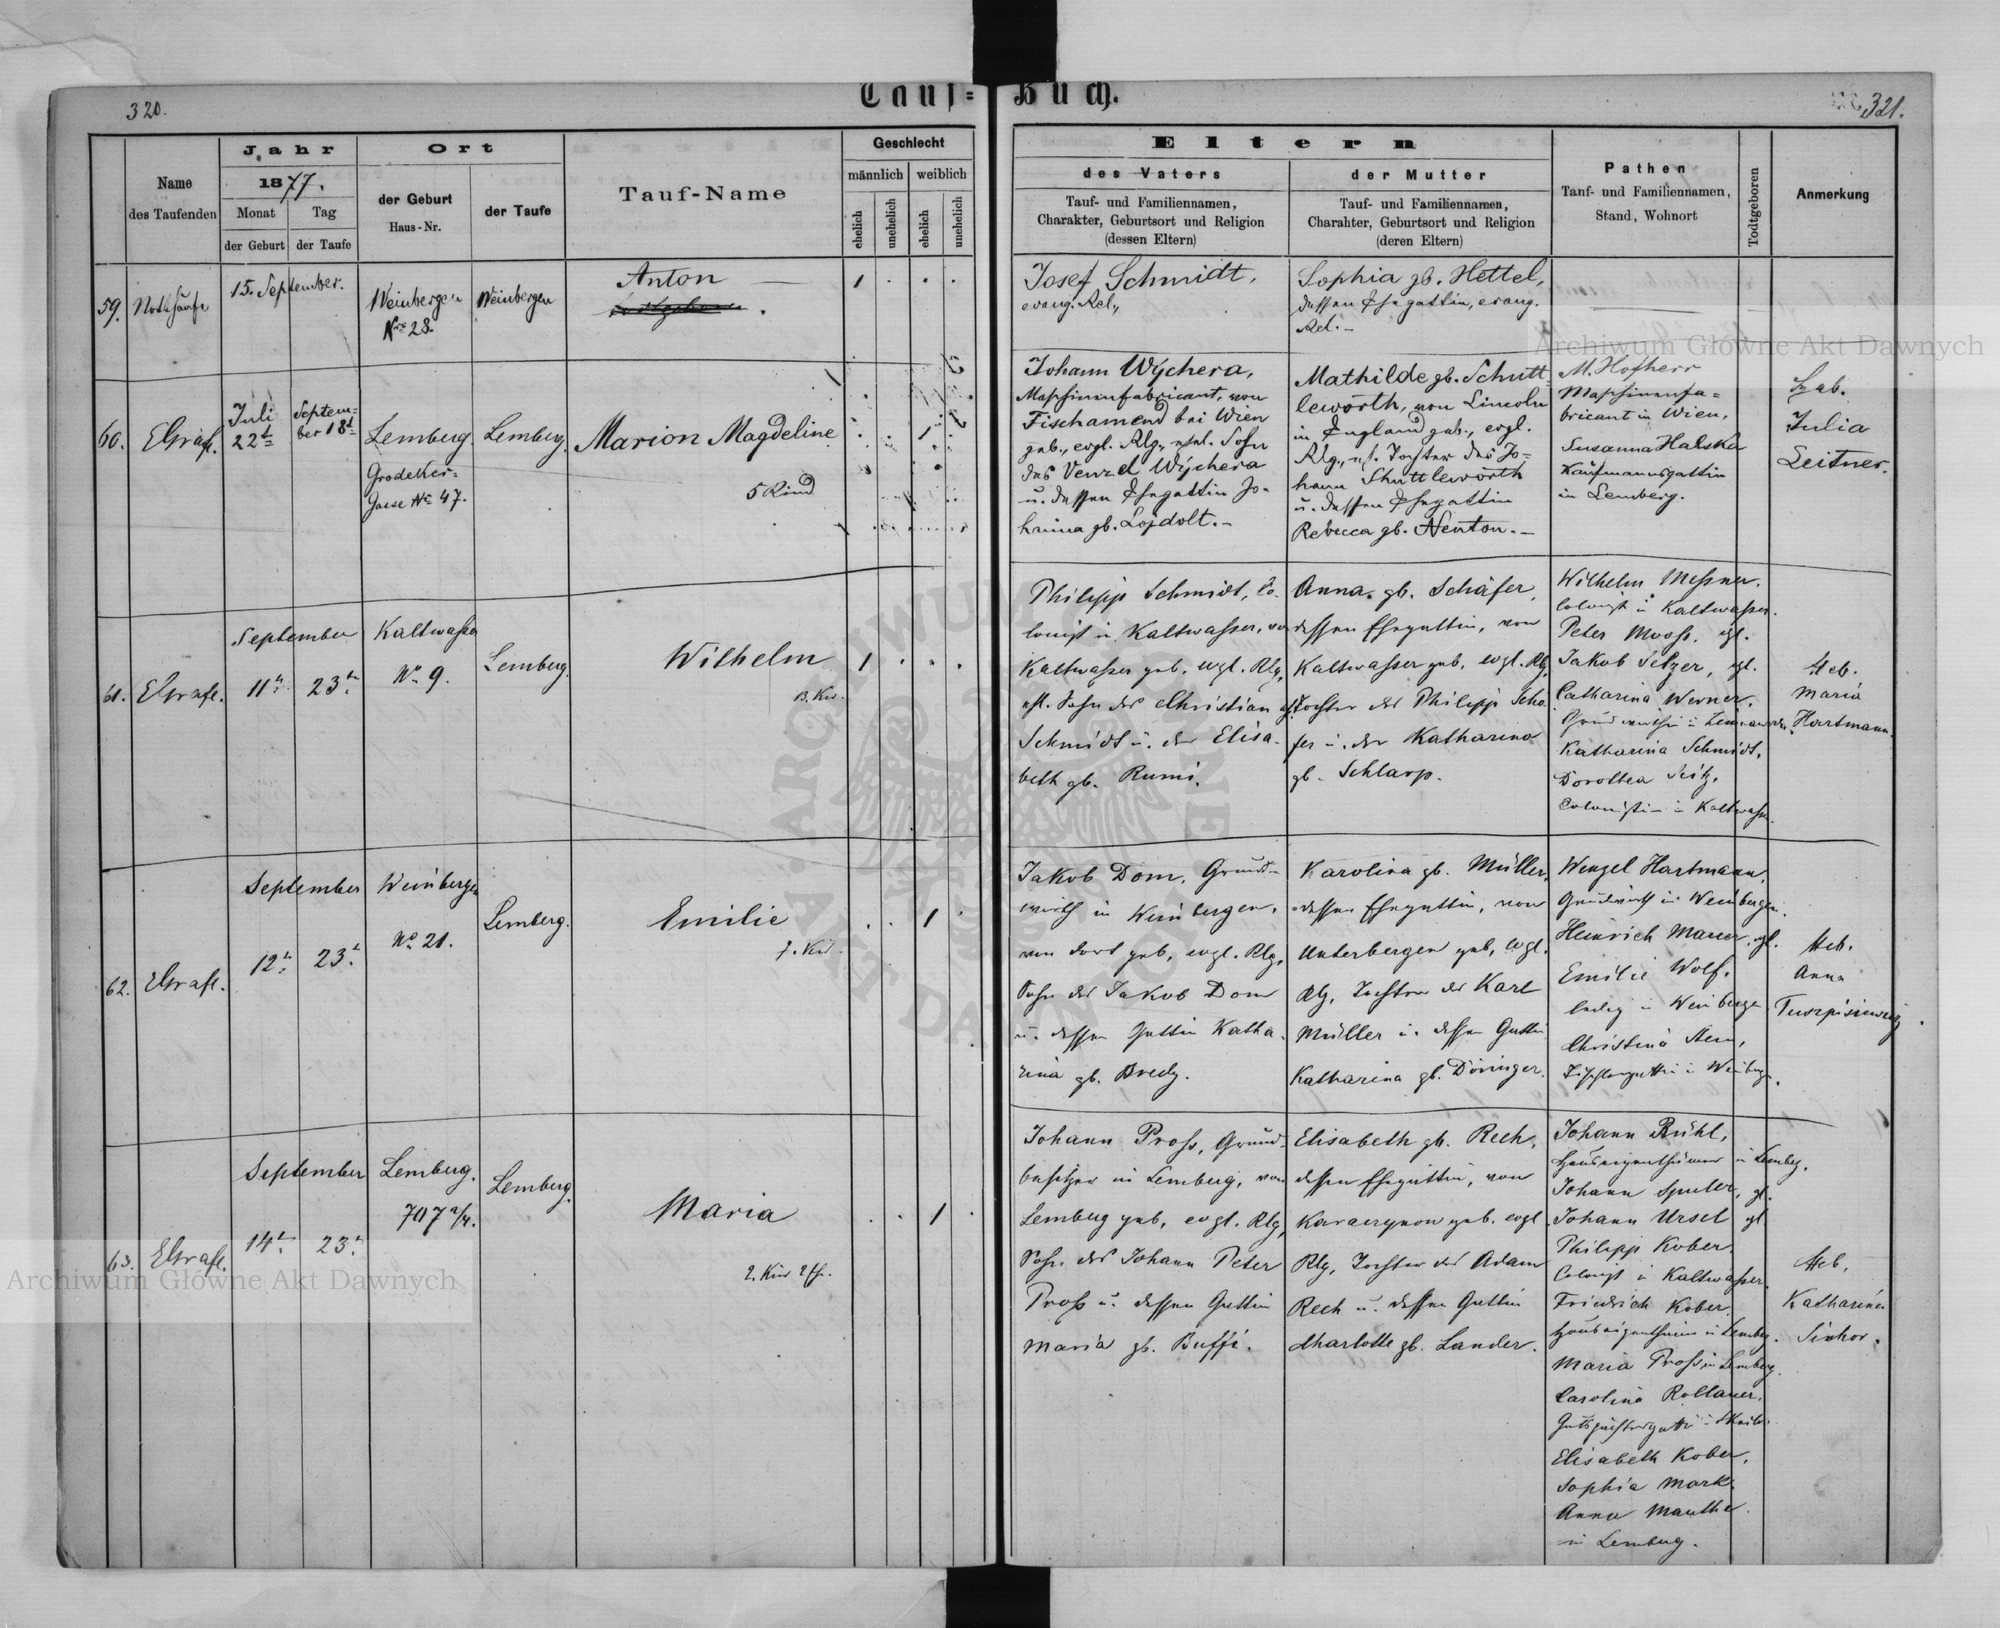 320.
Tauf-
Buch.
321.
Name
des Taufenden
Jahr
1877.
Monat
Tag
der Geburt
der Taufe
Ort
der Geburt
Haus-Nr.
der Taufe
Tauf-Name
Geschlecht
männlich
weiblich
ehelich
unehelich
ehelich
unehelich
Eltern
des Vaters
Tauf- und Familiennamen,
Charakter, Geburtsort und Religion
(dessen Eltern)
der Mutter
Tauf- und Familiennamen,
Charakter, Geburtsort und Religion
(deren Eltern)
Pathen
Tauf- und Familiennamen,
Stand, Wohnort
Todtgeboren
Anmerkung
59.
Nottaufe
15. September.
Weinbergen
Nro 28.
Weinbergen
Anton
1
Josef Schmidt,
evang. Rel.,
Sophia gb. Hettel,
dessen Ehegattin, evang.
Rel. –
60.
EGrafl.
Juli
22t
Septem-
ber 18t
Lemberg.
Grodeker-
Gasse No 47.
Lemberg.
Marion Magdeline
5 Kind
1
Johann Wychera,
Maschinenfabricant, von
Fischamend bei Wien
geb., evgl. Rlg., ehl. Sohn
des Venzel Wychera
u. dessen Ehegattin Jo-
hanna gb. Lojdolt. –
Mathilde gb. Schutt-
leworth, von Lincoln
in England geb., evgl.
Rlg., ehl. Tochter des Jo-
hann Shuttleworth
u. dessen Ehegattin
Rebecca gb. Nenton. –
M. Hofherr
Maschinenfa-
bricant in Wien,
Susanna Halska
Kaufmannsgattin
in Lemberg.
Heb.
Julia
Leitner.
61.
EGrafl.
September
11t
23t
Kaltwasser
No 9.
Lemberg.
Wilhelm
1
Philipp Schmidt, Co-
lonist in Kaltwasser, von
Kaltwasser geb. evgl. Rlg.,
ehl. Sohn des Christian
Schmidt u. der Elisa-
beth gb. Rumi.
Anna gb. Schäfer,
dessen Ehegattin, von
Kaltwasser geb. evgl. Rlg.,
Tochter des Philipp Schä-
fer u. der Katharina
gb. Schlarp.
Wilhelm Messner,
Colonist in Kaltwasser.
Peter Mooss,
Jakob Selzer,
Catharina Werner,
Katharina Schmidt,
Dorothea Seitz,
Colonistin in Kaltwasser.
Heb.
Maria
Hartmann.
62.
EGrafl.
September
12t
23t
Weinbergen
No 21.
Lemberg.
Emilie
7. Kind.
1
Jakob Dom, Grund-
wirth in Weinbergen,
von dort geb. evgl. Rlg.,
Sohn des Jakob Dom
u. dessen Gattin Katha-
rina gb. Bredy.
Karolina gb. Müller,
dessen Ehegattin, von
Unterbergen geb. evgl.
Rlg., Tochter des Karl
Müller u. dessen Gattin
Katharina gb. Döringer.
Wenzel Hartmann,
Grundwirth in Weinbergen.
Heinrich Mauer,
Emilie Wolf,
ledig in Weinbergen
Christina Stern,
Tischlersgattin in Weinbergen.
Heb.
Anna
63.
EGrafl.
September
14t
23t
Lemberg.
707 2/4.
Lemberg.
Maria
1
Johann Pross, Grund-
besitzer in Lemberg, von
Lemberg geb., evgl. Rlg.,
Sohn des Johann Peter
Pross u. dessen Gattin
Maria gb. Buffi.
Elisabeth gb. Rech,
dessen Ehegattin, von
geb. evgl.
Rlg., Tochter des Adam
Rech u. dessen Gattin
Charlotte gb. Lander.
Johann Rühl,
Hauseigenthümer in Lemberg.
Johann Spuler,
Johann Ursel
Philipp Kober,
Colonist in Kaltwasser.
Friedrich Kober,
Hauseigenthümer in Lemberg.
Maria Pross in Lemberg.
Carolina Rollauer,
Elisabeth Kober,
Sophia Mark,
Anna Mauthe
in Lemberg.
Heb.
Katharina
Sichor.
Archiwum Główne Akt Dawnych
Archiwum Główne Akt Dawnych